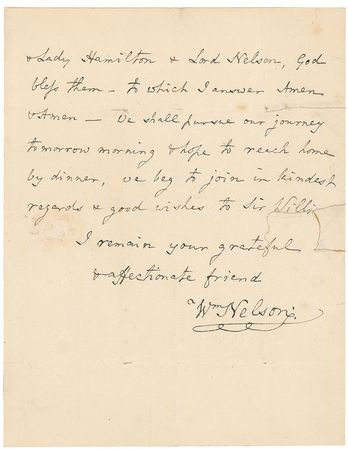 & Lady Hamilton & Lord Nelson, God
bless them – to which I answer Amen
& Amen — We shall pursue our journey
tomorrow morning & hope to reach home
by dinner, we beg to join in kindest
regards & good wishes to Sir Willm
I remain your grateful
& affectionate friend
Wm Nelson.